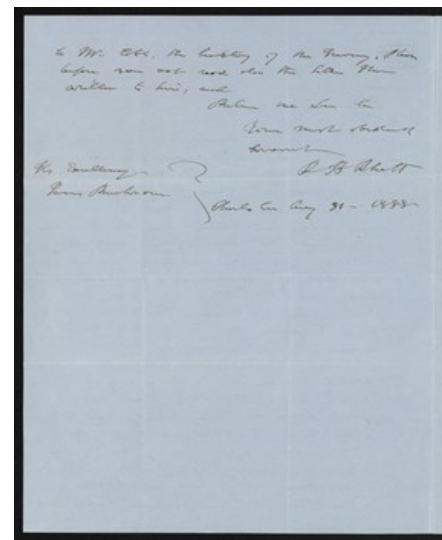 to Mr. Cobb, the Secretary of the Treasury. Please
before you act read also the letter I have
written to him; and
Believe me Dear Sir
Your most obedient
Servant
R B Rhett
His Excellency
James Buchanan
Charleston Aug 31 - 1858